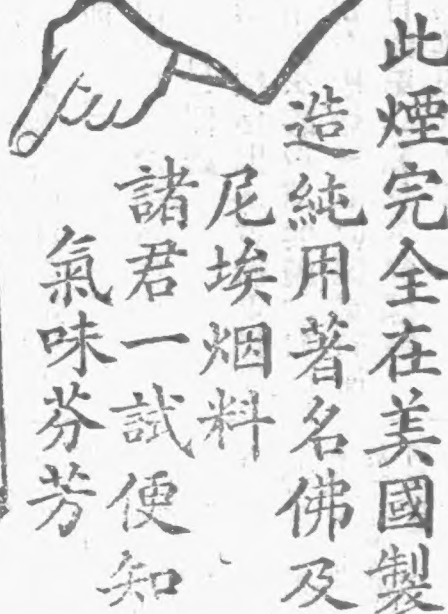 此煙完全在美國製
造純用著名佛及
尼埃烟料
諸君一試便知
氣味芬芳